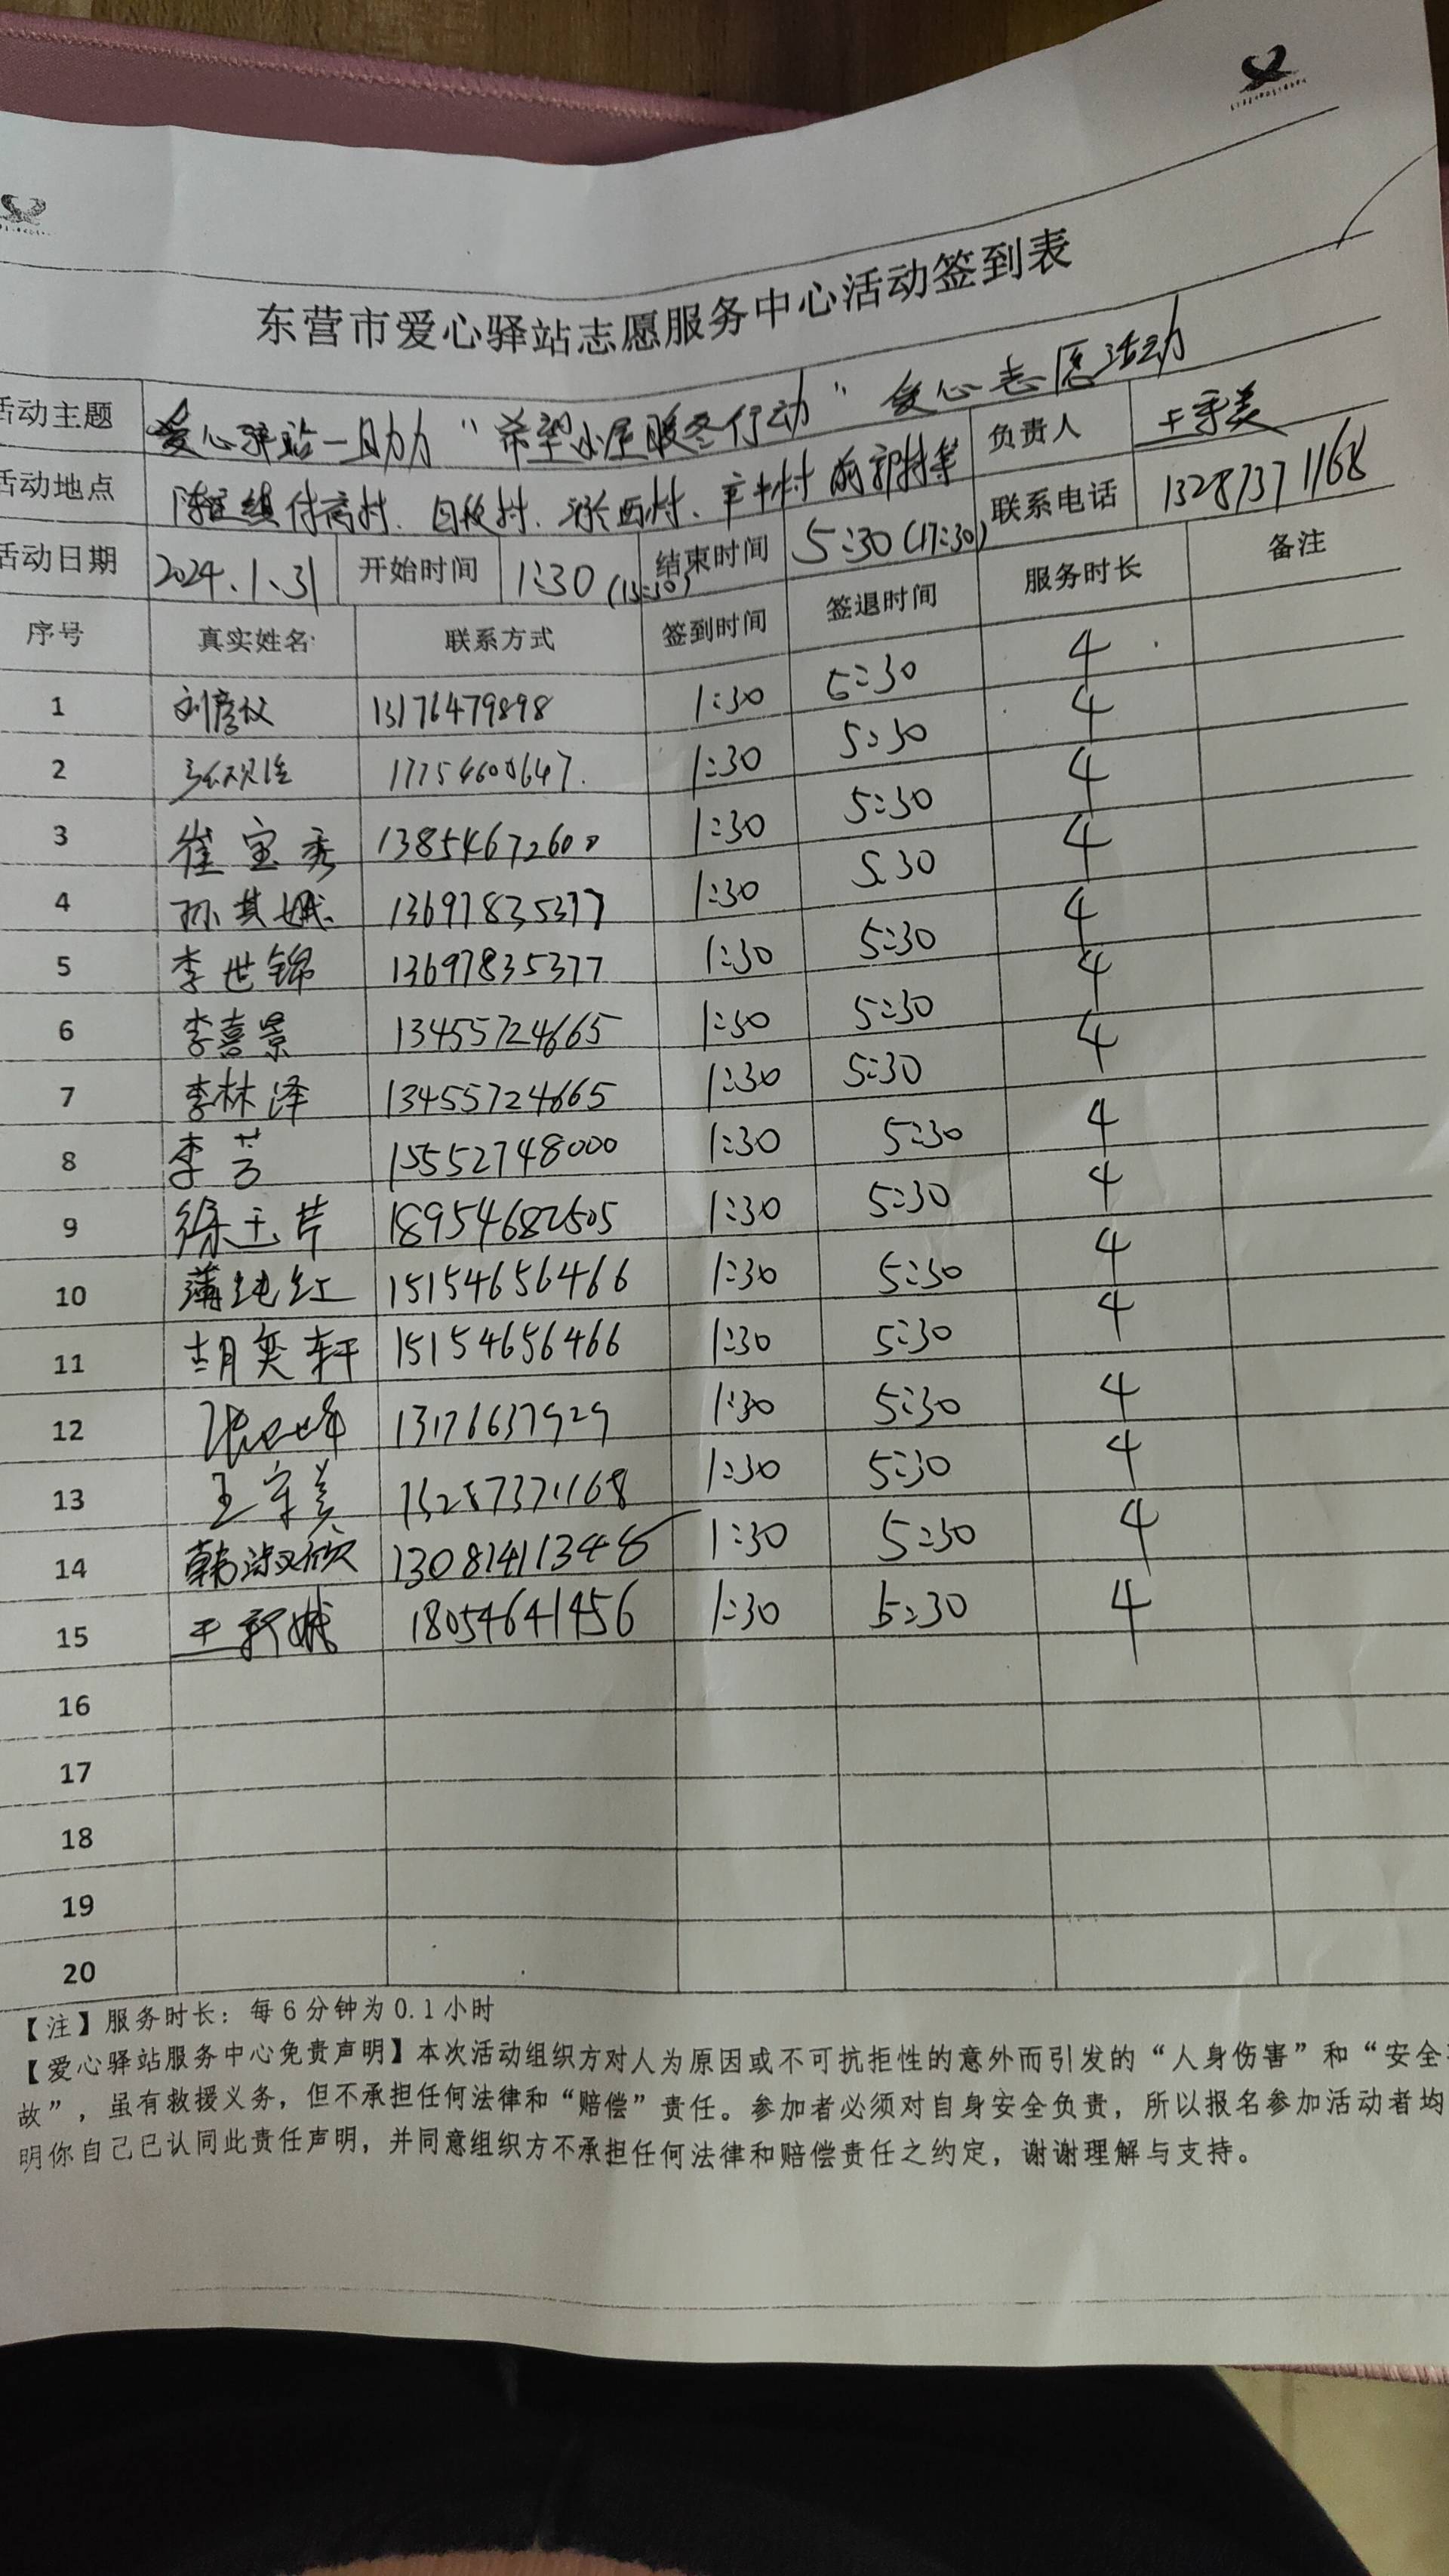 东营市爱心驿站志愿服务中心活动签到表
活动主题 爱心驿站—助力“希望小屋暖冬行动”爱心志愿活动 负责人 王守美
活动地点 陈庄镇付高村、村、西村、村等 联系电话 13287371168
活动日期 2024.1.31 开始时间 1:30(13:30) 结束时间 5:30(17:30)
序号 真实姓名 联系方式 签到时间 签退时间 服务时长 备注
1 刘彦 13176479898 1:30 5:30 4
2 17754600647. 1:30 5:30 4
3 崔宝秀 13854672600 1:30 5:30 4
4 孙其娥 13697835377 1:30 5:30 4
5 李世锦 13697835377 1:30 5:30 4
6 李喜景 13455724665 1:30 5:30 4
7 李林泽 13455724665 1:30 5:30 4
8 李芳 15552748000 1:30 5:30 4
9 徐玉芹 18954682505 1:30 5:30 4
10 薄纯红 15154656466 1:30 5:30 4
11 胡奕轩 15154656466 1:30 5:30 4
12 13176637929 1:30 5:30 4
13 王守美 13287371168 1:30 5:30 4
14 韩淑欣 13081411348 1:30 5:30 4
15 王新娥 18054641456 1:30 5:30 4
16
17
18
19
20
【注】服务时长：每6分钟为0.1小时
【爱心驿站服务中心免责声明】本次活动组织方对人为原因或不可抗拒性的意外而引发的“人身伤害”和“安全
故”，虽有救援义务，但不承担任何法律和“赔偿”责任。参加者必须对自身安全负责，所以报名参加活动者均
明你自己已认同此责任声明，并同意组织方不承担任何法律和赔偿责任之约定，谢谢理解与支持。